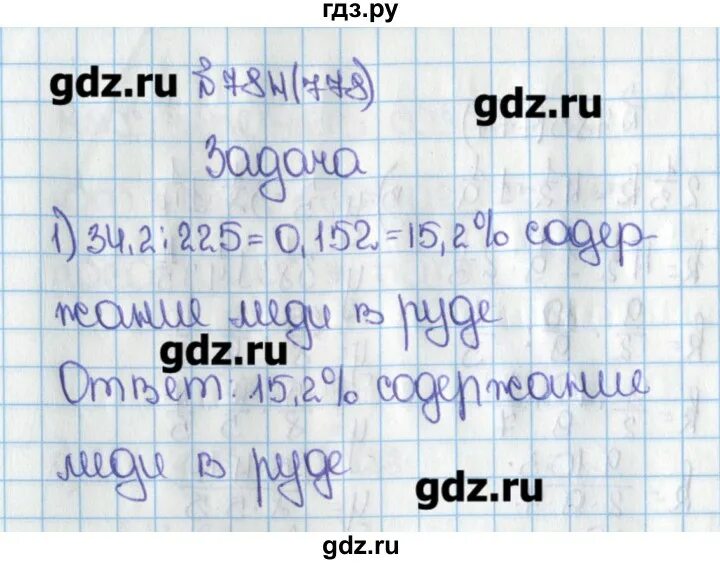 гдз.ру
gdz.ru
№ 784(778)
gdz.ru
Задача
1) 34,2:225=0,152=15,2% содер-
жание меди в руде
gdz.ru
Ответ: 15,2% содержание
меди в руде
gdz.ru
gdz.ru